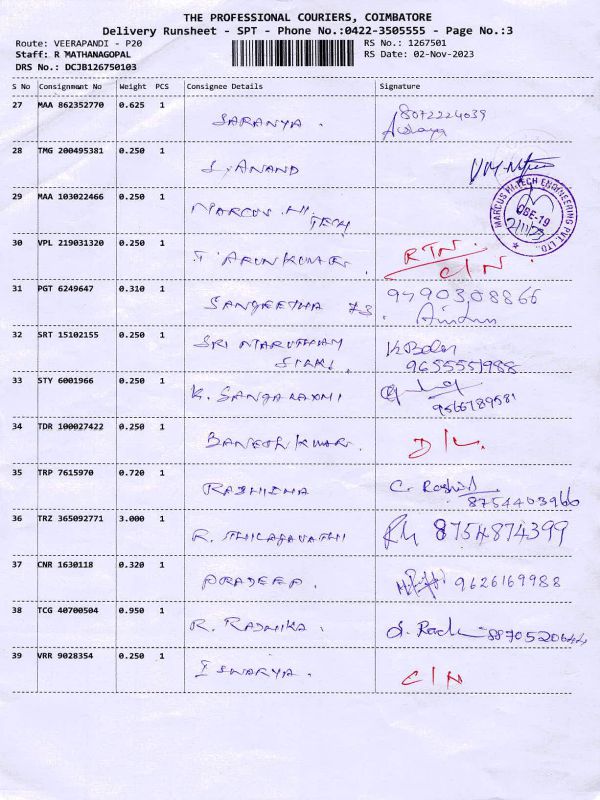 THE PROFESSIONAL COURIERS, COIMBATORE
Delivery Runsheet - SPT - Phone No.:0422-3505555 - Page No.:3
Route: VEERAPANDI - P20 RS No.: 1267501
Staff: R MATHANAGOPAL RS Date: 02-Nov-2023
DRS No.: DCJB126750103
S No Consignment No Weight PCS Consignee Details Signature
27 MAA 862352770 0.625 1
SARANYA . 8072224039
28 TMG 200495381 0.250 1
S. ANAND
29 MAA 103022466 0.250 1
MARCUS HI TECH
MARCUS HI-TECH ENGINEERING PVT. LTD.
CBE-19
2/11/23
30 VPL 219031320 0.250 1
T ARUN KUMAR . RTN.
C/N
31 PGT 6249647 0.310 1
SANGEETHA JS. 9790308866
32 SRT 15102155 0.250 1
SRI MARUTHAM K. Balan
9655551988
33 STY 6001966 0.250 1
K. SANGA LAXMI
9566789581
34 TDR 100027422 0.250 1
GANESH KUMAR . D/L.
35 TRP 7615970 0.720 1
RASHIDHA C. Rashid
8754403966
36 TRZ 365092771 3.000 1
R. THILAGAVATHI 8754874399
37 CNR 1630118 0.320 1
PRADEEP . 9626169988
38 TCG 40700504 0.950 1
R. RADHIKA . 8870520644
39 VRR 9028354 0.250 1
ISWARYA . C/N